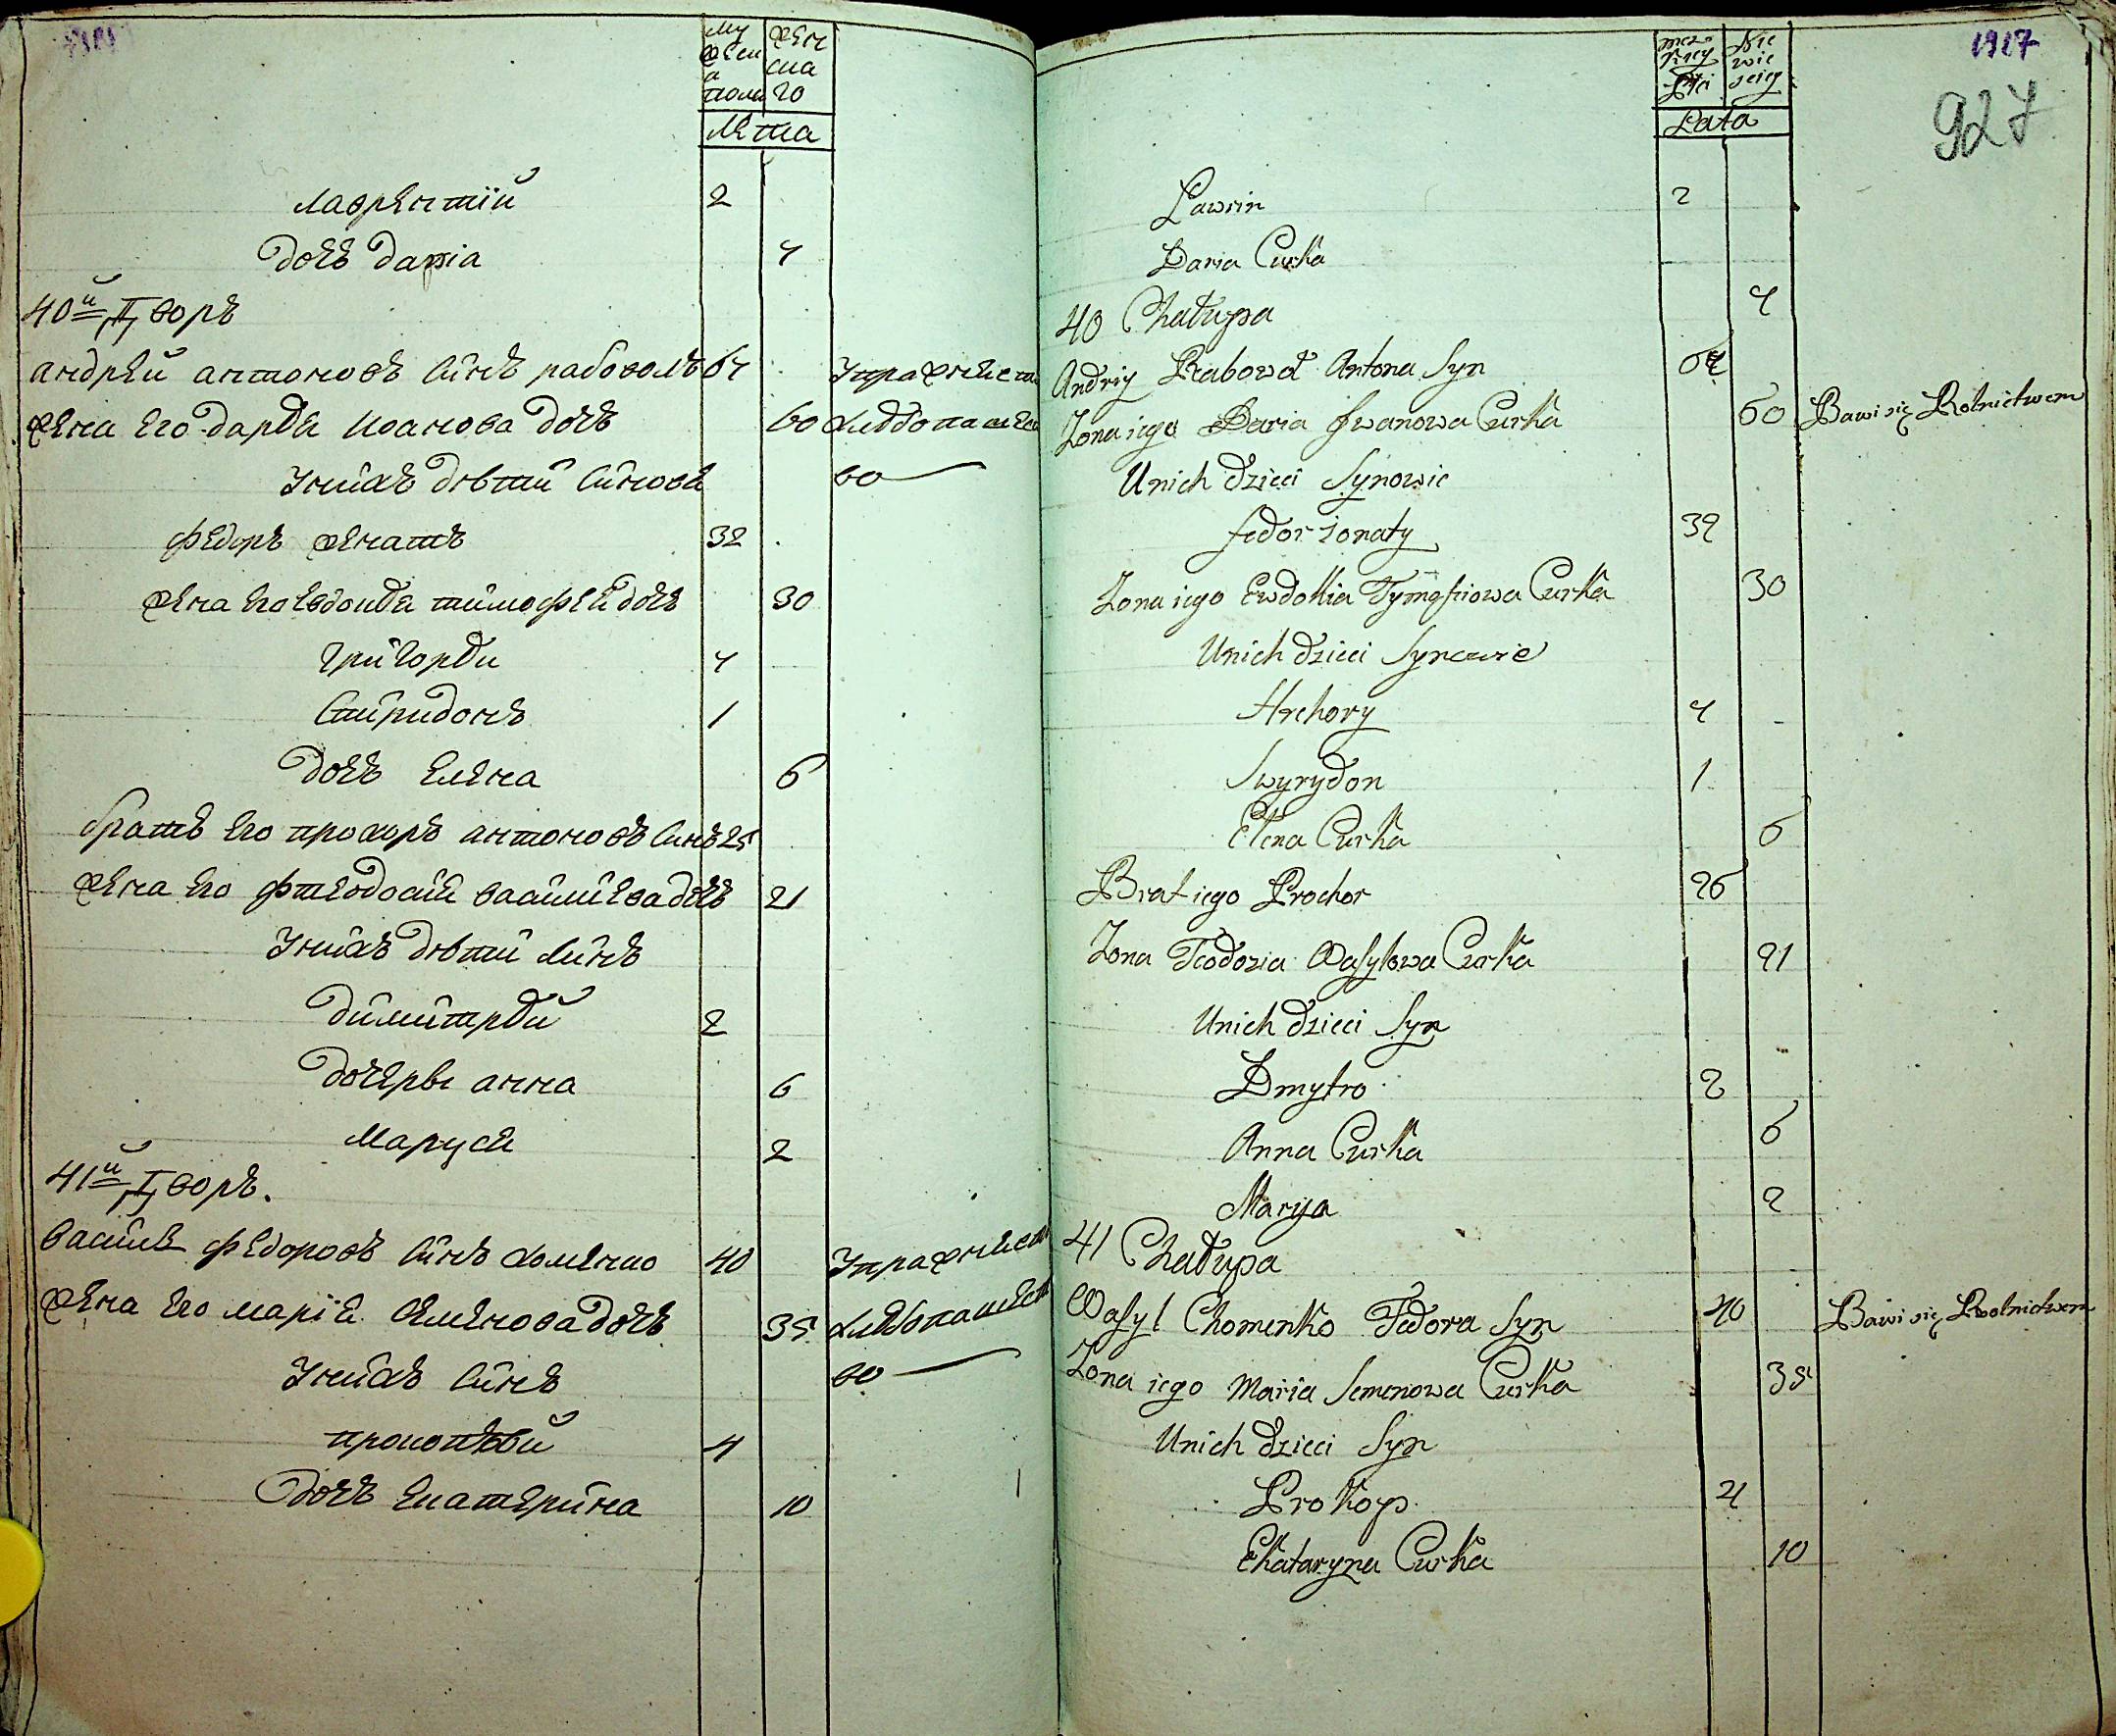 Му
жеска
пола
жен
ска
го
Лета
Лаврентий 2
дочь дария 4
40й Двор
андрей антонов син рабовол 64 Упражнает
жена его дария Иоанова дочь 60 хлебопашес
У них дети синове во
федор женат 32
жена его евдокия тимофей дочь 30
григорий 4
спиридон 1
дочь елена 6
брат его прохор антонов син 25
жена его фтеодосия василиева дочь 21
У них дети син
димитрий 2
дочери анна 6
Маруся 2
41й Двор.
василь федоров син хоменко 40 Упражнает
жена его мария семенова дочь 35 хлебопашест
У них син во
прокопий 4
дочь екатерина 10
1917
927
męz
kiey
płci
Nie
wie
sciey
Lata
Lawrin 2
Daria Curka 4
40 Chałupa
Andriy Rabowoł Antona Syn 64
Zona iego Daria Jwanowa Curka 60 Bawi się Rolnictwem
Unich dzieci Synowie
fedor zonaty 32
Zona iego Ewdokia Tymofiiowa Curka 30
Unich dzieci Synowie
Hrehory 4
Swyrydon 1
Elena Curka 6
Brat iego Prochor 26
Zona Teodozia Wasylowa Curka 21
Unich dzieci Syn
Dmytro 2
Anna Curka 6
Marya 2
41 Chałupa
Wasyl Chomenko Fedora Syn 40 Bawi się Rolnictwem
Zona iego Maria Semenowa Curka 35
Unich dzieci Syn
Prokop 4
Ekataryna Curka 10